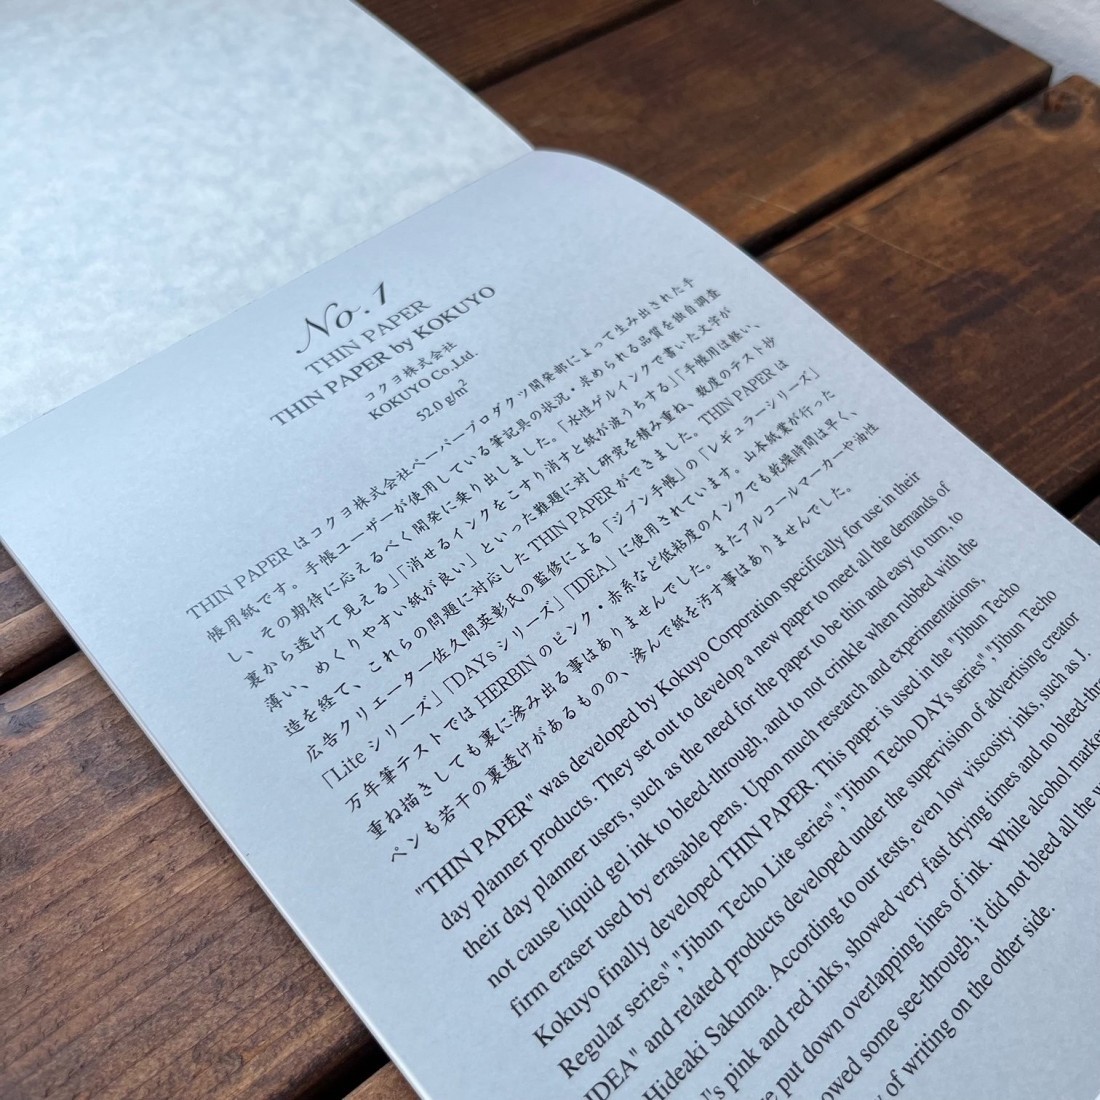 No. 1
THIN PAPER
THIN PAPER by KOKUYO
コクヨ株式会社
KOKUYO Co.,Ltd.
52.0 g/m²
THIN PAPER はコクヨ株式会社ペーパープロダクツ開発部によって生み出された手
帳用紙です。手帳ユーザーが使用している筆記具の状況・求められる品質を独自調査
し、その期待に応えるべく開発に乗り出しました。「水性ゲルインクで書いた文字が
裏から透けて見える」「消せるインクをこすり消すと紙が波うちする」「手帳用は軽い、
薄い、めくりやすい紙が良い」といった難題に対し研究を積み重ね、数度のテスト抄
造を経て、これらの問題に対応した THIN PAPER ができました。THIN PAPER は
広告クリエーター佐久間英彰氏の監修による「ジブン手帳」の「レギュラーシリーズ」
「Lite シリーズ」「DAYs シリーズ」「IDEA」に使用されています。山本紙業が行った
万年筆テストでは HERBIN のピンク・赤系など低粘度のインクでも乾燥時間は早く、
重ね描きしても裏に滲み出る事はありませんでした。またアルコールマーカーや油性
ペンも若干の裏透けがあるものの、滲んで紙を汚す事はありませんでした。
"THIN PAPER" was developed by Kokuyo Corporation specifically for use in their
day planner products. They set out to develop a new paper to meet all the demands of
their day planner users, such as the need for the paper to be thin and easy to turn, to
not cause liquid gel ink to bleed-through, and to not crinkle when rubbed with the
firm eraser used by erasable pens. Upon much research and experimentations,
Kokuyo finally developed THIN PAPER. This paper is used in the "Jibun Techo
Regular series","Jibun Techo Lite series","Jibun Techo DAYs series","Jibun Techo
IDEA" and related products developed under the supervision of advertising creator
Hideaki Sakuma. According to our tests, even low viscosity inks, such as J.
pink and red inks, showed very fast drying times and no bleed-thr
put down overlapping lines of ink. While alcohol marke
owed some see-through, it did not bleed all the w
of writing on the other side.